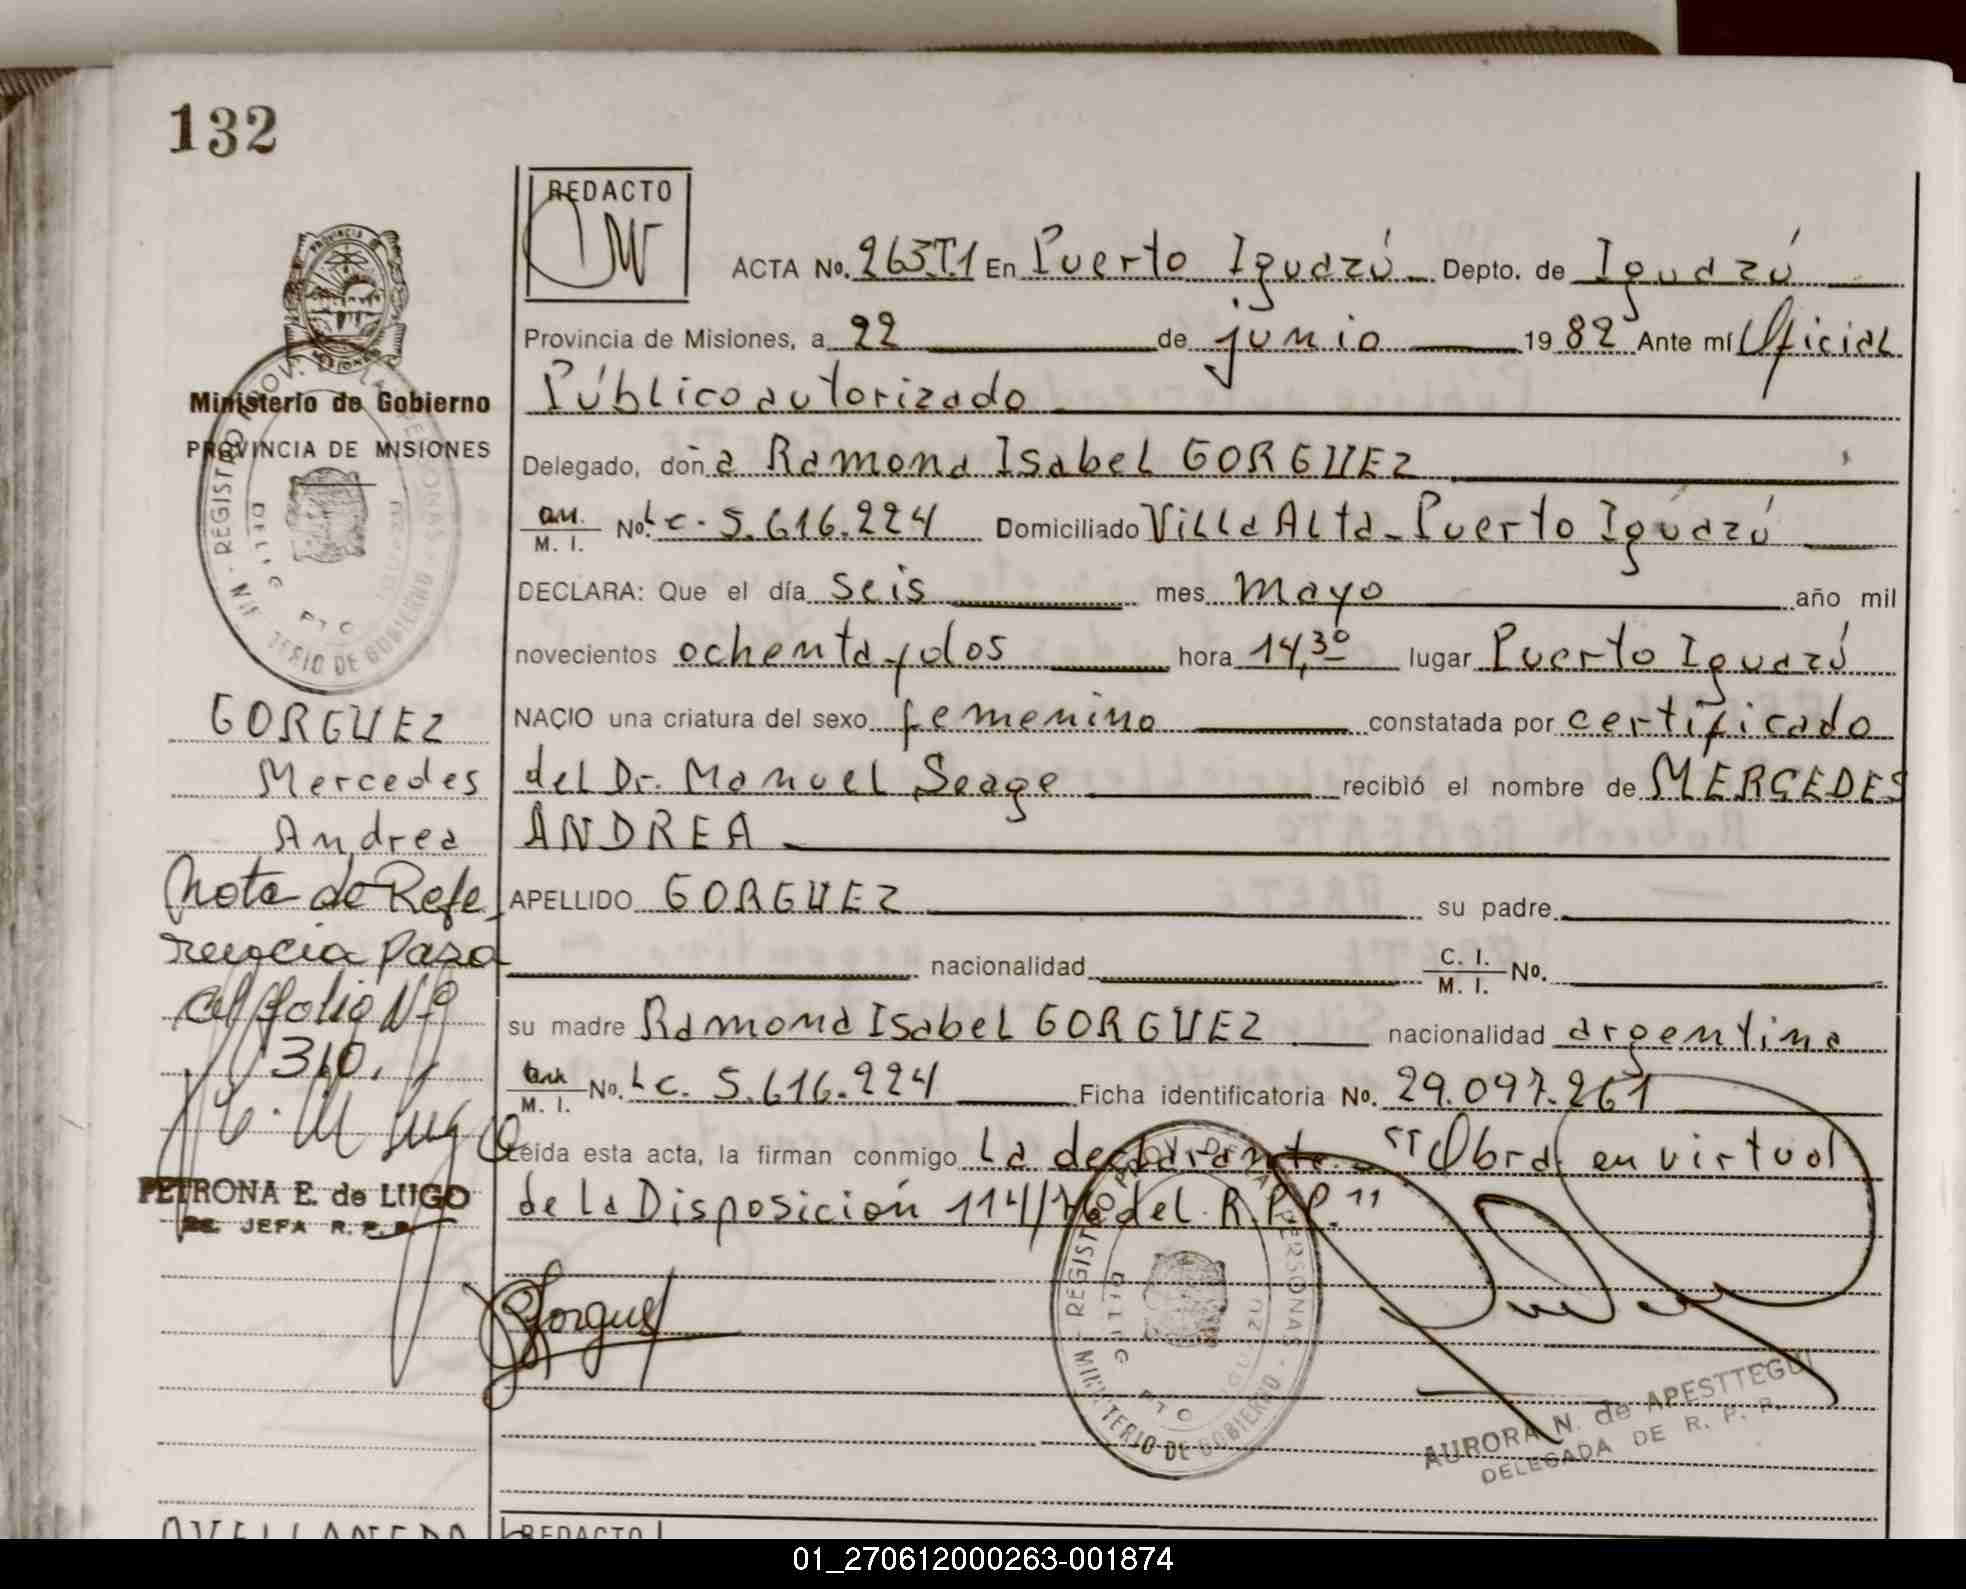 132
REDACTO
ACTA No. 263T.1 En Puerto Iguazú Depto. de Iguazú
Provincia de Misiones, a 22 de junio 1982 Ante mí Oficial
Público autorizado
Delegado, doña Ramona Isabel GORGUEZ
M. I. No. Lc. 5.616.224 Domiciliado Villa Alta - Puerto Iguazú
DECLARA: Que el día seis mes mayo año mil
novecientos ochenta y dos hora 14,30 lugar Puerto Iguazú
NACIO una criatura del sexo femenino constatada por certificado
del Dr. Manuel Seage recibió el nombre de MERCEDES
ANDREA
APELLIDO GORGUEZ su padre
nacionalidad C. I. M. I. No.
su madre Ramona Isabel GORGUEZ nacionalidad argentina
M. I. No. Lc. 5.616.224 Ficha identificatoria No. 29.097.261
Leida esta acta, la firman conmigo la declarante. "Obra en virtud
de la Disposición 114/76 del R.P.P."
Ministerio de Gobierno
PROVINCIA DE MISIONES
REGISTRO PROV. DE LAS PERSONAS
MINISTERIO DE GOBIERNO
GORGUEZ
Mercedes
Andrea
Nota de Refe-
rencia pasa
al folio Nº
310.
PETRONA E. de LUGO
JEFA R.P.P.
REGISTRO PROV. DE LAS PERSONAS
MINISTERIO DE GOBIERNO
AURORA N. de APESTTEGUI
DELEGADA DE R. P. P.
REDACTO
01_270612000263-001874